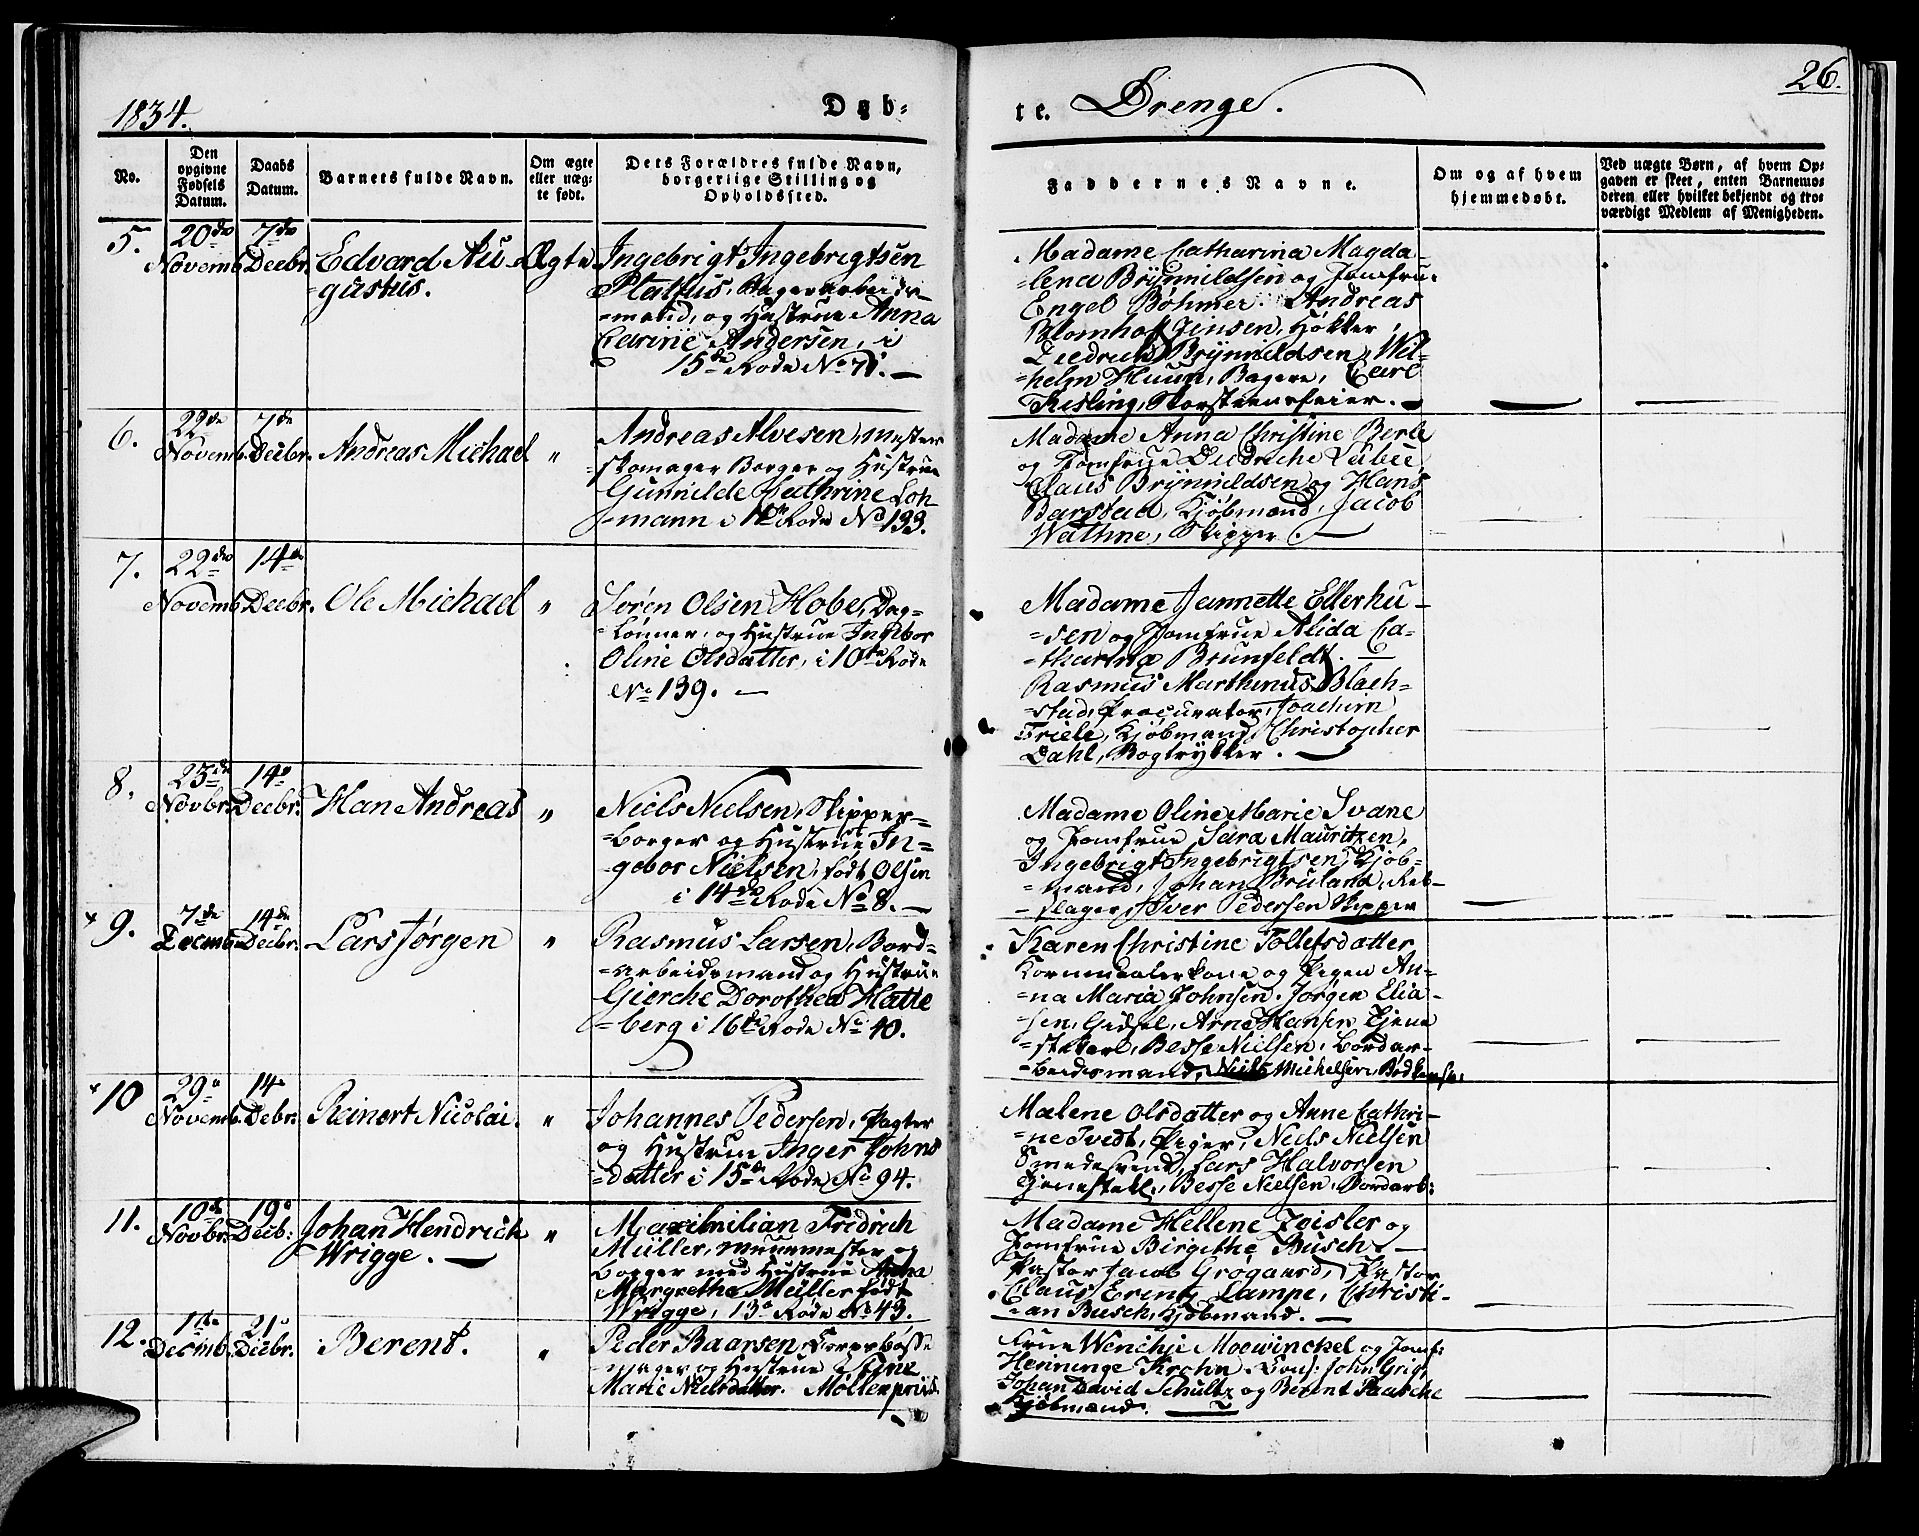 1834.
Døb-
te. Drenge.
26.
No.
Den opgivne Fødsels Datum.
Daabs Datum.
Barnets fulde Navn.
Om ægte eller uægte født.
Dets Forældres fulde Navn, borgerlige Stilling og Opholdssted.
Faddernes Navne.
Om og af hvem hjemmedøbt.
Ved uægte Børn, af hvem Opgaven er skeet, enten Barnemoderen eller hvilket bekjendt og troværdigt Medlem af Menigheden.
5.
20de Novemb.
7de Decbr.
Edvard Au-
gustus.
Ægte
Ingebrigt Ingebrigtsen
Plathus, Bagerarbeids-
mand, og Hustrue Anna
Carine Andersen, i
15de Rode No 71.
Madame Catharina Magda-
lena Brynnildsen og Jomfrue
Engel Bøhmer. Andreas
Blomhoff Jensen, Høkker,
Diedrich Brynnildsen, Wil-
helm Huun, Bagere, Carl
Kisling, Skorsteensfeier.
6.
22de Novemb.
7de Decbr.
Andreas Michael
"
Andreas Alvesen, Mester
skomager Borger og Hustrue
Gunnilde Cathrine Loh-
mann i Rode No 133.
Madame Anna Christine Berle
og Jomfrue Diedriche Lübee,
Claus Brynnildsen og Hans
Barstad, Kjøbmænd, Jacob
Wathne, Skipper.
7.
22de Novemb.
14de Decbr.
Ole Michael
"
Søren Olsen Hobe, Dag-
lønner, og Hustrue Ingebor
Oline Olsdatter, i 10de Rode
No 139.
Madame Jannette Ellerhu-
sen og Jomfrue Alida Ca-
tharina Brunfeldt.
Rasmus Marthinus Blach-
stad, Procurator, Joachim
Friele, Kjøbmand, Christopher
Dahl, Bogtrykker.
8.
23de Novbr.
14de Decbr.
Han Andreas
"
Niels Nielsen, Skipper-
borger og Hustrue In-
gebor Nielsen, født Olsen
i 14de Rode No 8.
Madame Oline Marie Svane
og Jomfrue Sara Mauritzen,
Ingebrigt Ingebrigtsen, Kjøb-
mand, Johan Bruland, Reb-
slager, Iver Pedersen Skipper
9.
7de Decemb.
14de Decbr.
Lars Jørgen
"
Rasmus Larsen, Bord-
arbeidsmand og Hustrue
Gierche Dorothea Hatle
berg i 16de Rode No 40.
Karen Christine Tollefsdatter,
Kornmaalerkone og Pigen An-
na Maria Johnsen. Jørgen Elia-
sen, Gidsel, Arne Hansen Tjene
stekarl, Besse Nielsen, Bordar-
beidsmand, Niels Michelsen Bødkersv.
10
29de Novemb.
14de Debr.
Reinert Nicolai.
"
Johannes Pedersen, Pagter
og Hustrue Inger Johns
datter i 15de Rode No 94.
Malene Olsdatter og Anne Cathri-
ne Tvedt, Piger, Niels Nielsen
Smedesvend, Lars Halvorsen
Tjenestek., Besse Nielsen, Bordarb:
11.
10de Novbr.
19de Decb:
Johan Hendrich
Wrigge.
"
Maximilian Fridrich
Müller, Muurmester og
Borger med Hustrue Anna
Margretha Müller født
Wrigge, 13de Rode No 43.
Madame Hellene Zeisler og
Jomfrue Birgithe Busch.
Pastor Jacob Grøgaard, Pastor
Claus Erentz Lampe, Christi-
an Busch, Kjøbmand.
12.
1ste Decmb.
21de Decbr.
Berent.
"
Peder Baarsen,
mager og Hustrue Stine
Marie Nielsdatter. Møllenpriis
Frue Wenchje Moewinckel og Jomf:
Henninge Krohn. Cons: John Grieg,
Johan David Schultz og Berent Paasche
Kjøbmænd.